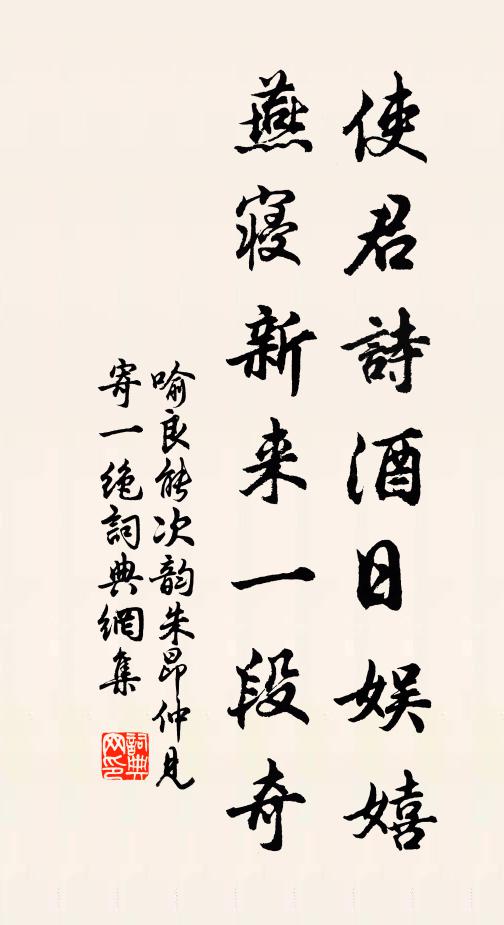 使君詩酒日娛嬉
燕寢新来一段奇
喻良能次韵朱昂仲見
寄一絶詞典網集
詞典
网印